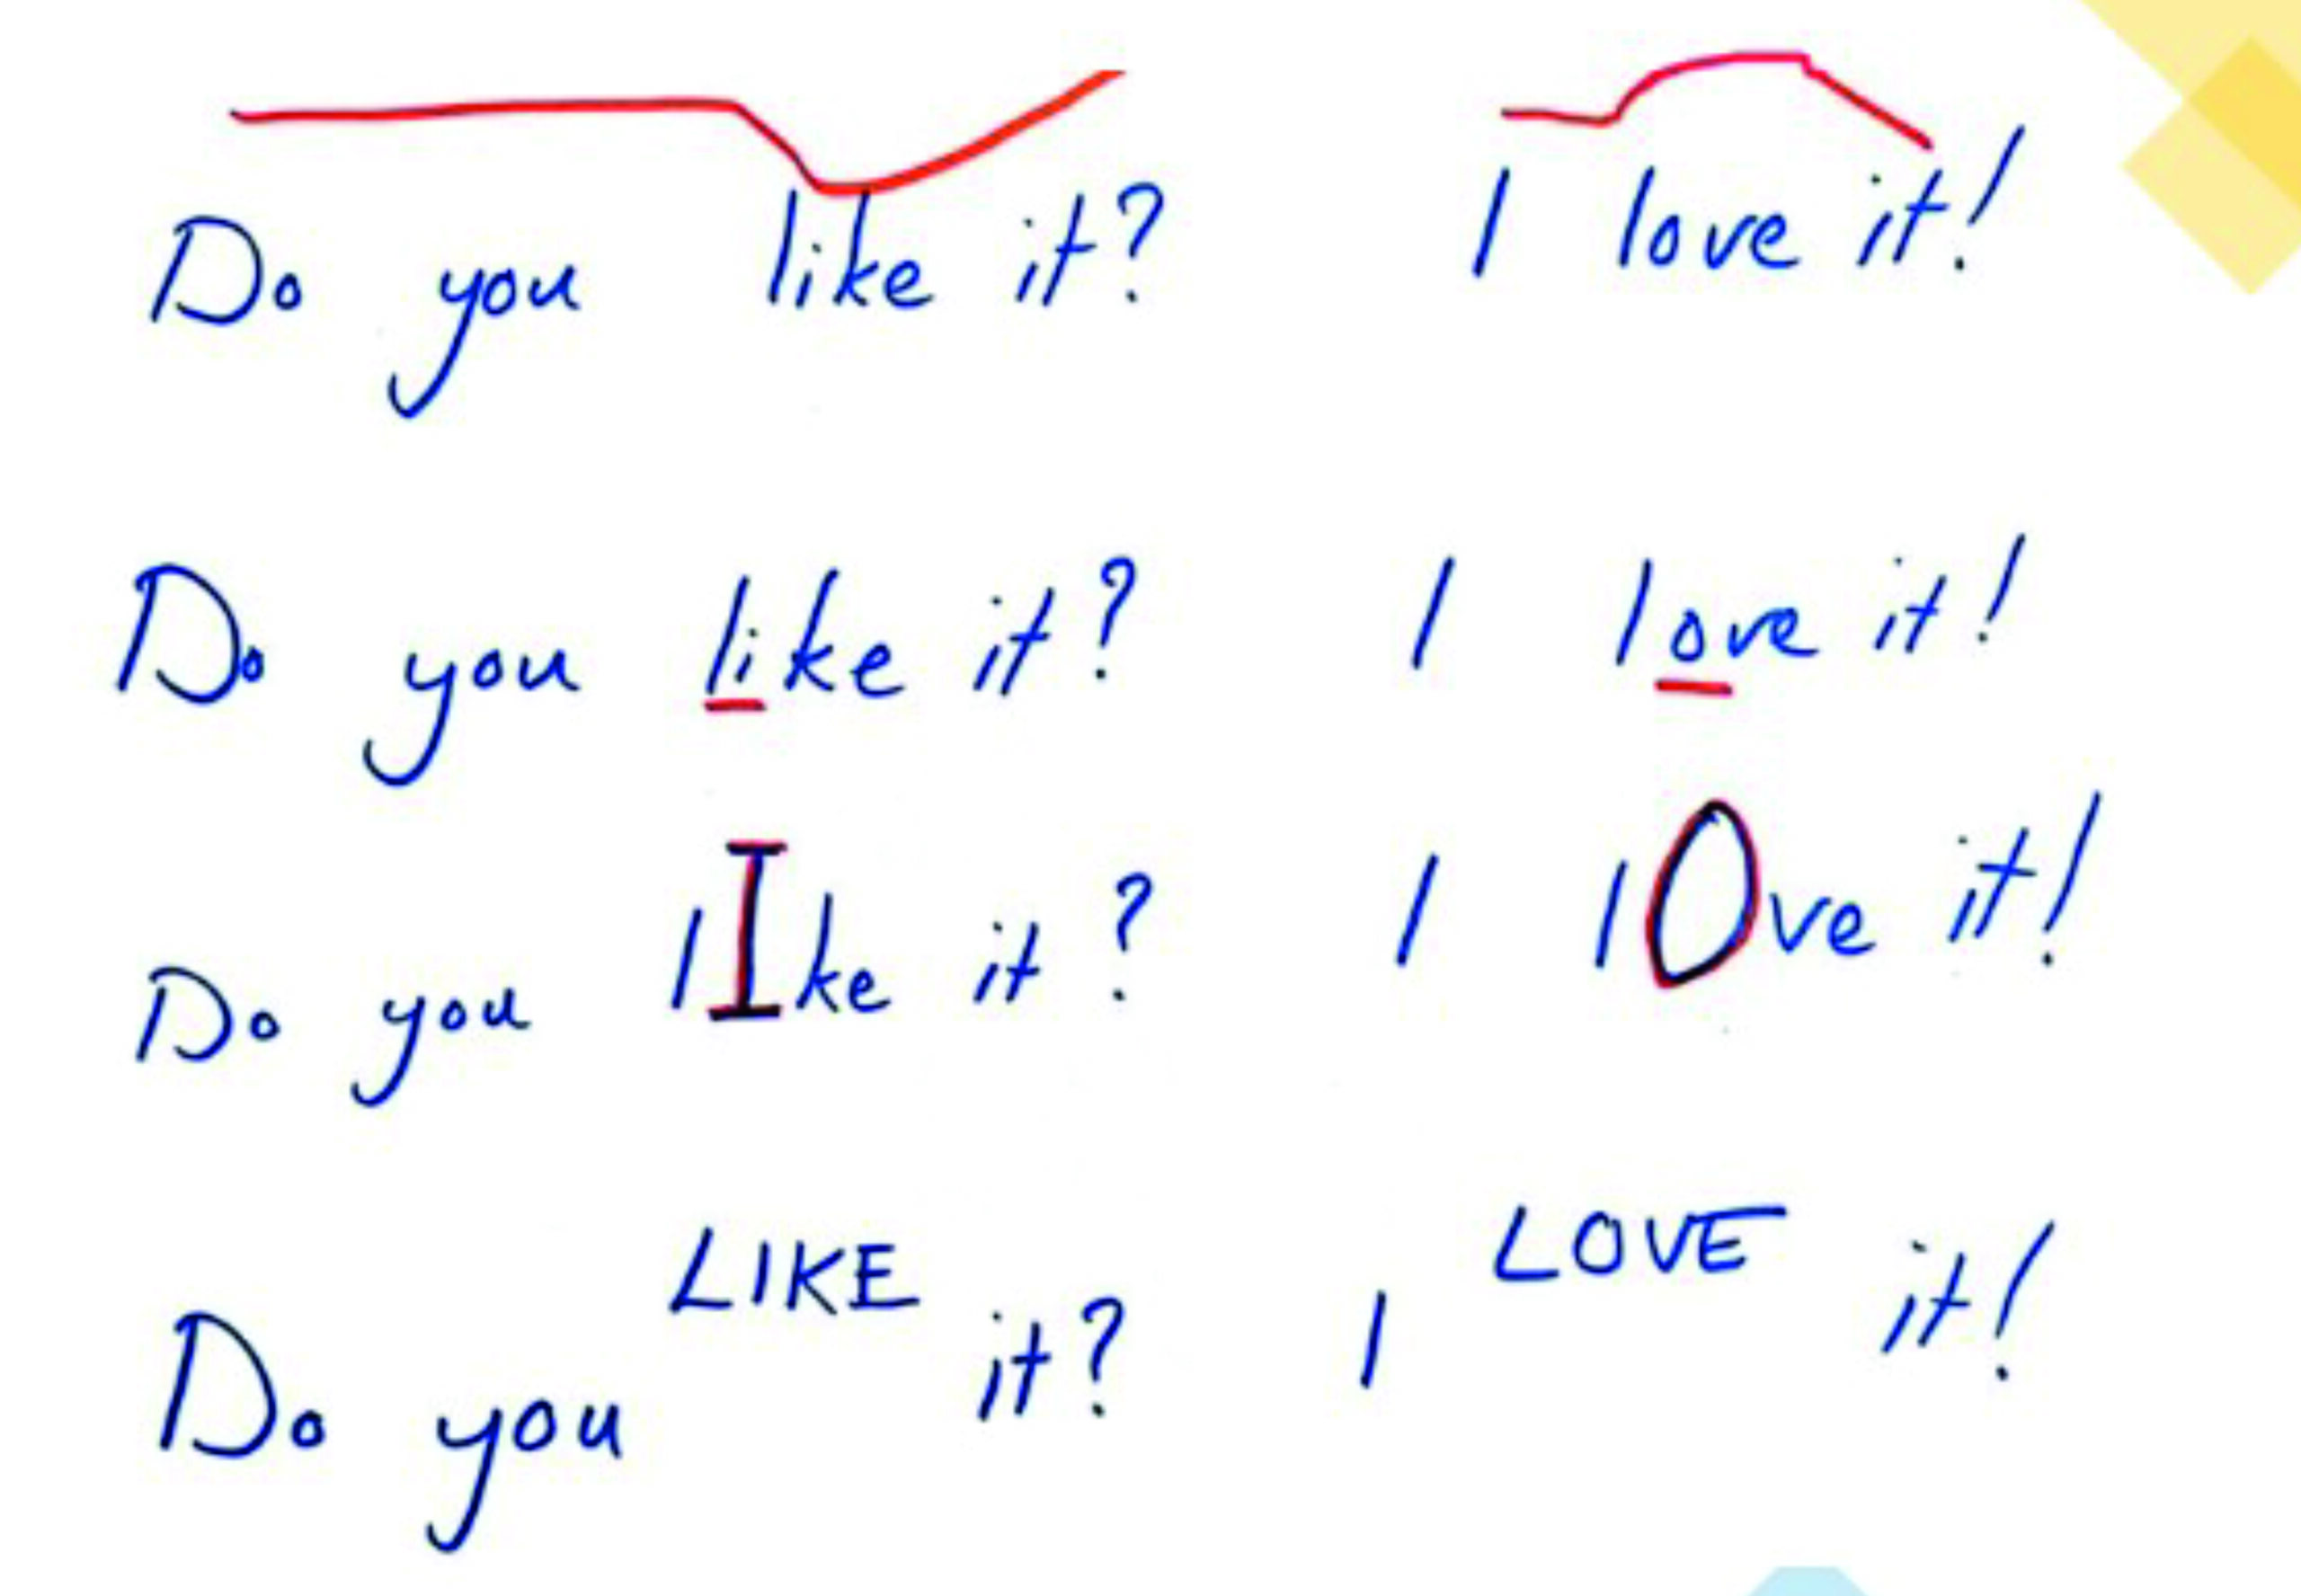 Do you like it? I love it!
Do you like it? I love it!
Do you lIke it? I lOve it!
Do you LIKE it? I LOVE it!